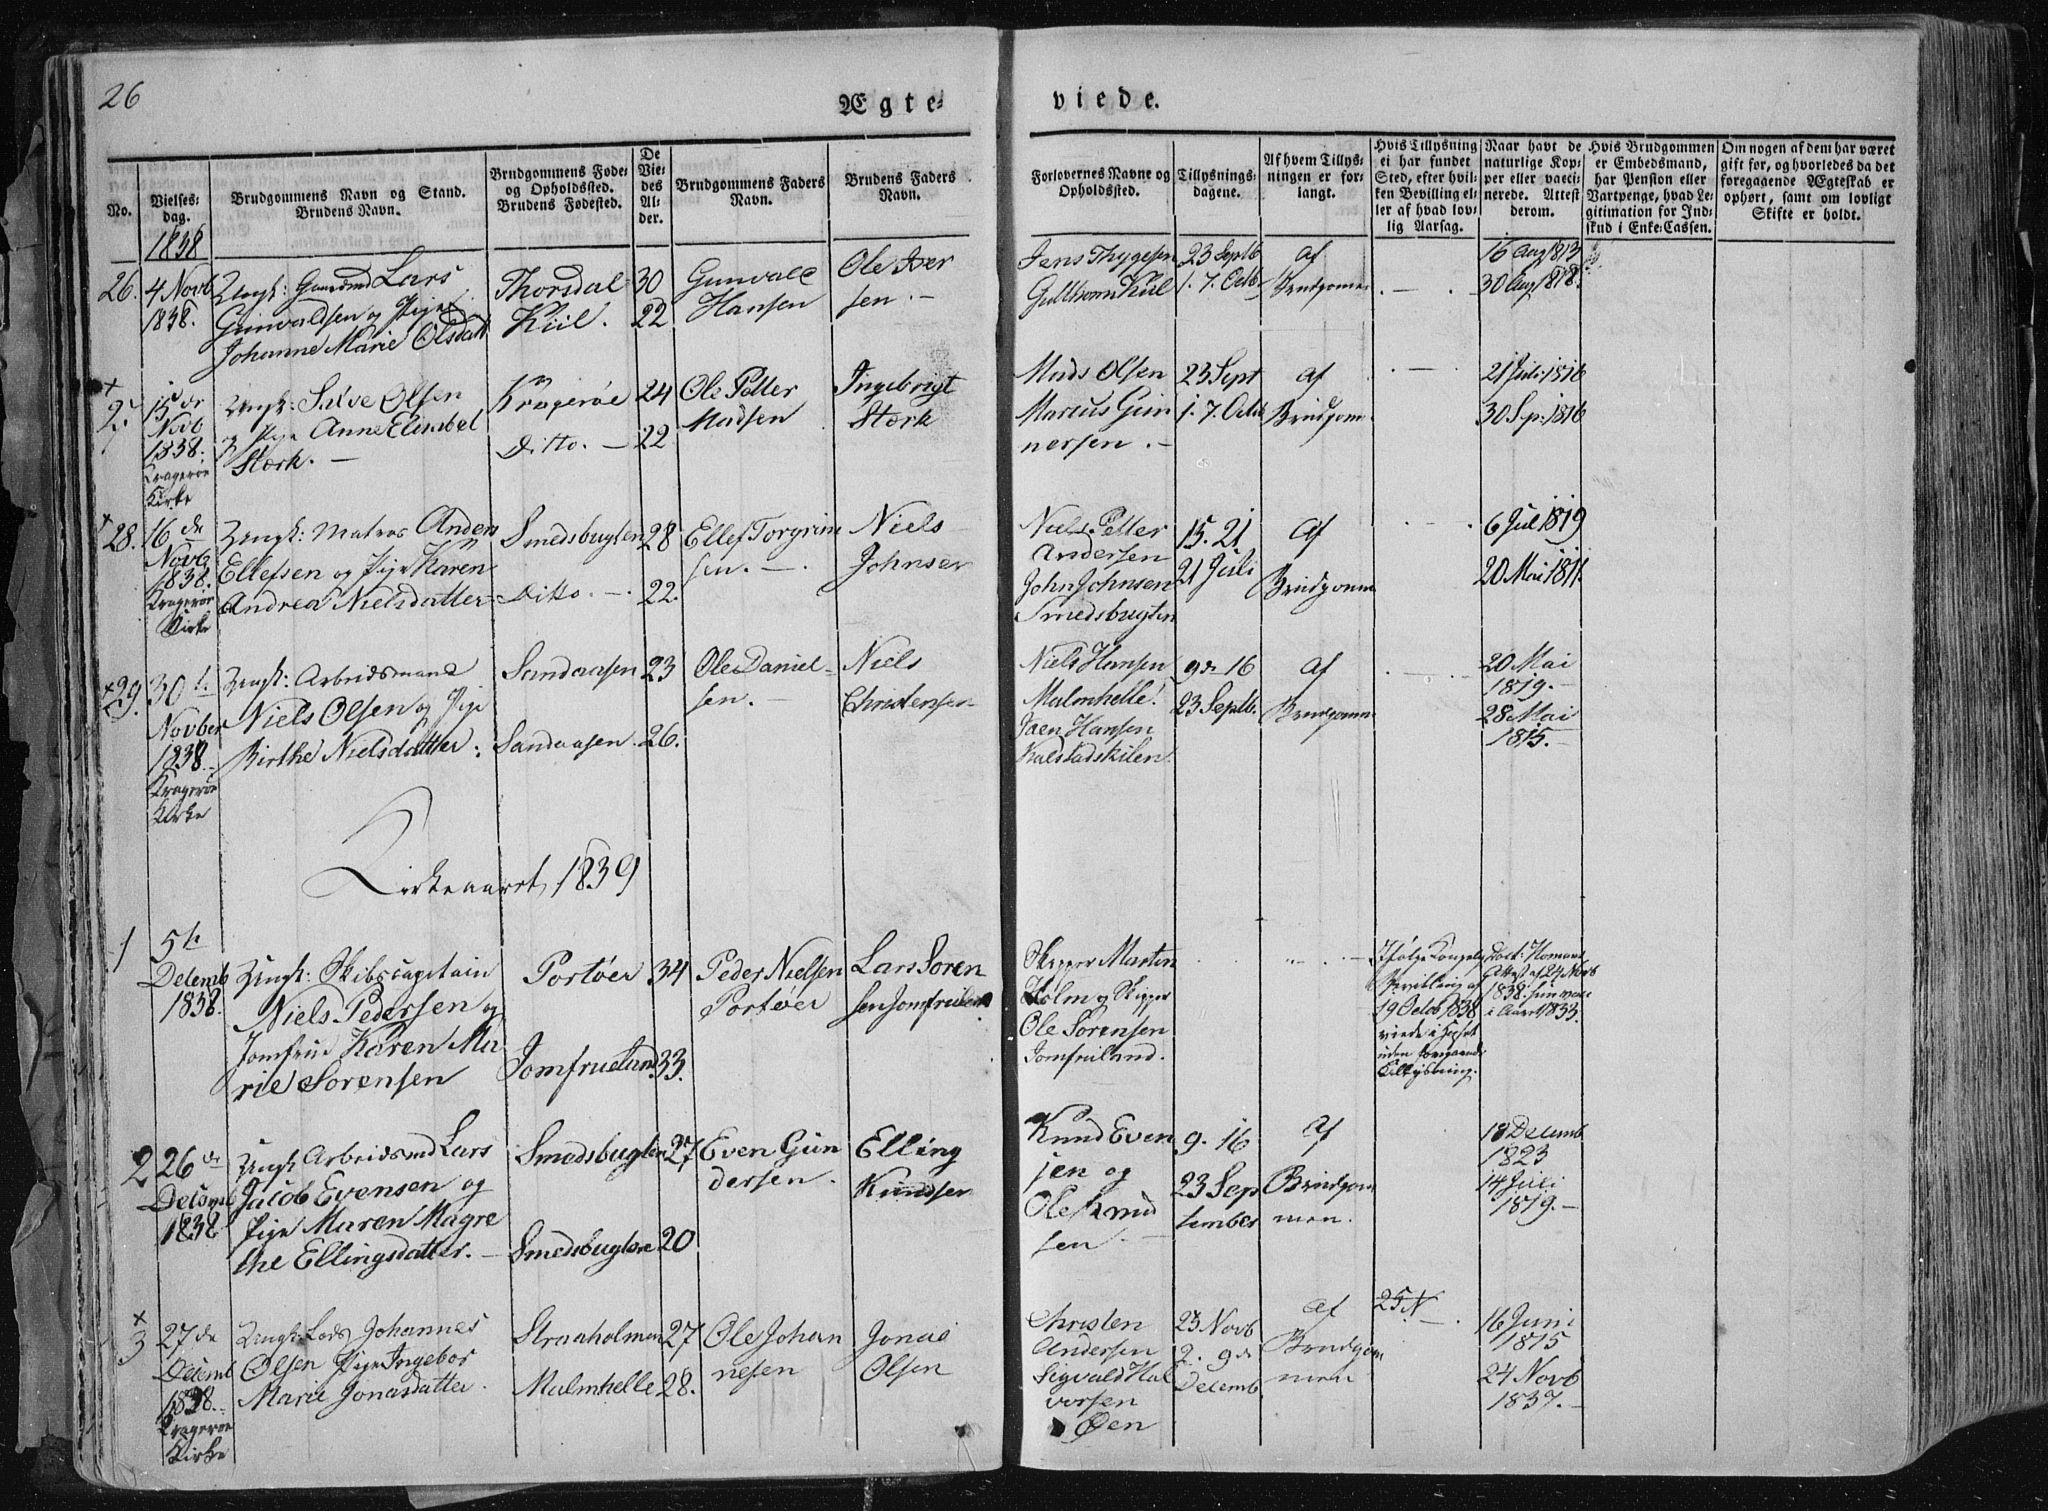 26
Ægte-
viede.
No.
Vielses-
dag.
Brudgommens Navn og Stand.
Brudens Navn.
Brudgommens Føde-
og Opholdssted.
Brudens Fødested.
De
Vie-
des
Al-
der.
Brudgommens Faders
Navn.
Brudens Faders
Navn.
Forlovernes Navne og
Opholdssted.
Tillysnings-
dagene.
Af hvem Tillys-
ningen er for-
langt.
Hvis Tillysning
ei har fundet
Sted, efter hvil-
ken Bevilling el-
ler af hvad lov-
lig Aarsag.
Naar havt de
naturlige Kop-
per eller vacci-
nerede. Attest
derom.
Hvis Brudgommen
er Embedsmand,
har Pension eller
Vartpenge, hvad Le-
gitimation for Ind-
skud i Enke-Cassen.
Om nogen af dem har været
gift før, og hvorledes da det
foregagende Ægteskab er
ophørt, samt om lovligt
Skifte er holdt.
1838
26. 4 Novb
1838.
Ungk: Lars
Gunvaldsen og Pige
Johanne Marie Olsdatt
Thorsdal 30
Kiil. 22
Gunvald
Hansen
Ole Iver
sen.-
Jens Thygesen
23 Septb
1. 7. Octb
af
Brudgomen
16 Aug 1813
30 Aug 1818.
27
15 de
Novb
1838.
Kragerøe
Kirke
Ungk: Salve Olsen
og Pige Anne Elisabet
Stærk. -
Kragerøe 24
Ditto. - 22
Ole Petter
Madsen
Ingebrigt
Stærk
Mads Olsen
Marcus Gun
nersen. -
23 Sept
1. 7. Octb
af
Brudgom
21 Juli 1816
30 Sp. 1816
28. 16 de
Novb
1838.
Kragerøe
Kirke
Ungk: Matros Anders
Ellefsen og Pige Karen
Andrea Nielsdatter
Smedsbugten 28
Ditto. - 22.
Ellef Torgrim
sen. -
Niels
Johnsen
Niels Petter
Andersen
John Johnsen
Smedsbugten
15. 21
21 Juli
af
Brudgomm
6 Jul 1819
20 Mai 1811
29. 30 t.
Novber
1838
Kragerøe
Kirke
Ungk: Arbeidsmand
Niels Olsen og Pige
Birthe Nielsdatter
Sandaasen 23
Sandaasen. 26.
Ole Daniel-
sen. -
Niels
Christensen
Niels Hansen
Malmhelle.
Jaen Hansen
Kalstadskilen
9de 16
23 Septb.
af
Brudgomm
20 Mai
1819. -
28 Mai
1815. -
Kirkeaaret 1839
1
5 t.
Decemb
1838.
Ungk: Skibscapitain
Niels Pedersen og
Jomfrue Karen Ma
rie Sørensen
Portøer 34
Jomfrueland 33.
Peder Nielsen
Portøer
Lars Søren
sen Jomfruland
Skipper Morten
Holm og Skipper
Ole Sørensen
Jomfruland.
Ifølge Kongelig
Bevilling af
19 Octob 1838
viede i Huset
uden foregaaende
Tillysning.
Doct: Homans
Attest af 24 Novb
1838.
i Aaret 1833.
2
26 de
Decemb
1838
Ungk Arbeidsmd Lars
Jacob Evensen og
Pige Maren Magre
the Ellingsdatter. -
Smedsbugten 27
Smedsbugten 20
Even Gun
dersen.
Elling
Knudsen
Knud Even
sen og
Ole Knud
sen. -
9. 16
23 Sep
tember
af
Brudgom
men.
18 Decemb
1823
14 Juli
1819. -
3
27 de
Decemb
1838.
Kragerøe
Kirke
Ungk: Lods Johannes
Olsen Pige Ingebor
Marie Jonasdatter.
Straaholmen 27
Malmhelle 28.
Ole Johan
nesen
Jonas
Olsen
Christen
Andersen
Sigvald Hal
vorsen
Øen
23 Novb
2. 9 de
Decemb
af
Brudgom
men
25 N
16 Juni
1815
24 Novb
1837. -